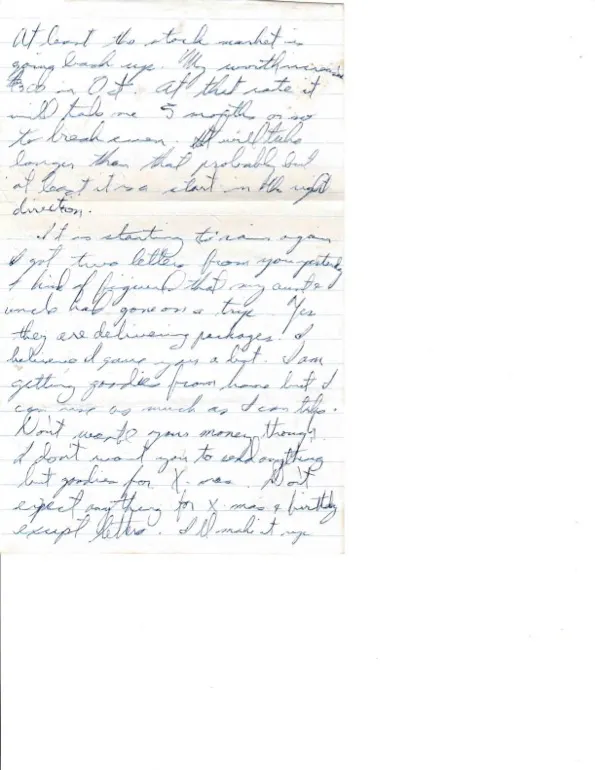 At least the stock market is
going back up. My worth increased
$300 in Oct. At that rate it
will take me 5 months or so
to break even. It will take
longer than that probably but
at least it is a start in the right
direction.
It is starting to rain again
I got two letters from you yesterday
I kind of figured that my aunt &
uncle had gone on a trip. Yes
they are delivering packages. I
believe I gave you a list. I am
getting goodies from home but I
can use as much as I can take.
Don't waste your money though.
I don't want you to send anything
but goodies for X-mas. Don't
expect anything for X-mas & birthday
except letters. I'll make it up